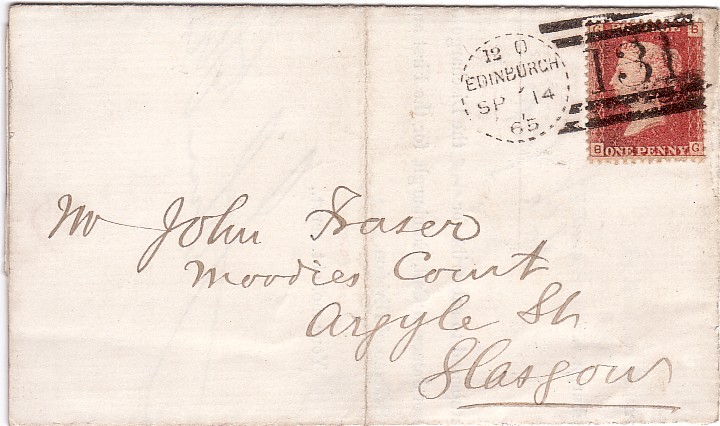 G POSTAGE B
131
B ONE PENNY G
12 O
EDINBURGH
SP 14
65
Mr John Fraser
Moodies Court
Argyle St
Glasgow